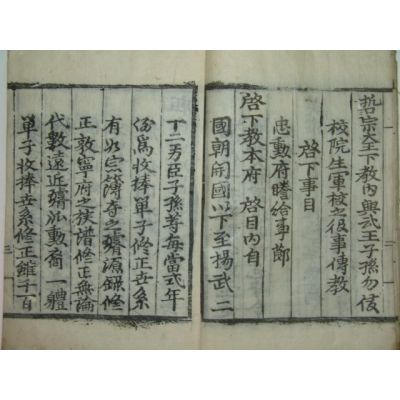 哲宗大王下教內興武王子孫勿侵
校院生軍校之役事傳教
啓下事目
忠勳府謄給事
啓下教本府 啓目內自
國朝開國以下至揚武二
二功臣子孫等每當式年
例爲收捧單子修正世系
有如宗簿寺之璿源錄修
正敦寧府之族譜修正無論
代數遠近嫡派勳裔一體
單子收捧世系修正雖千百